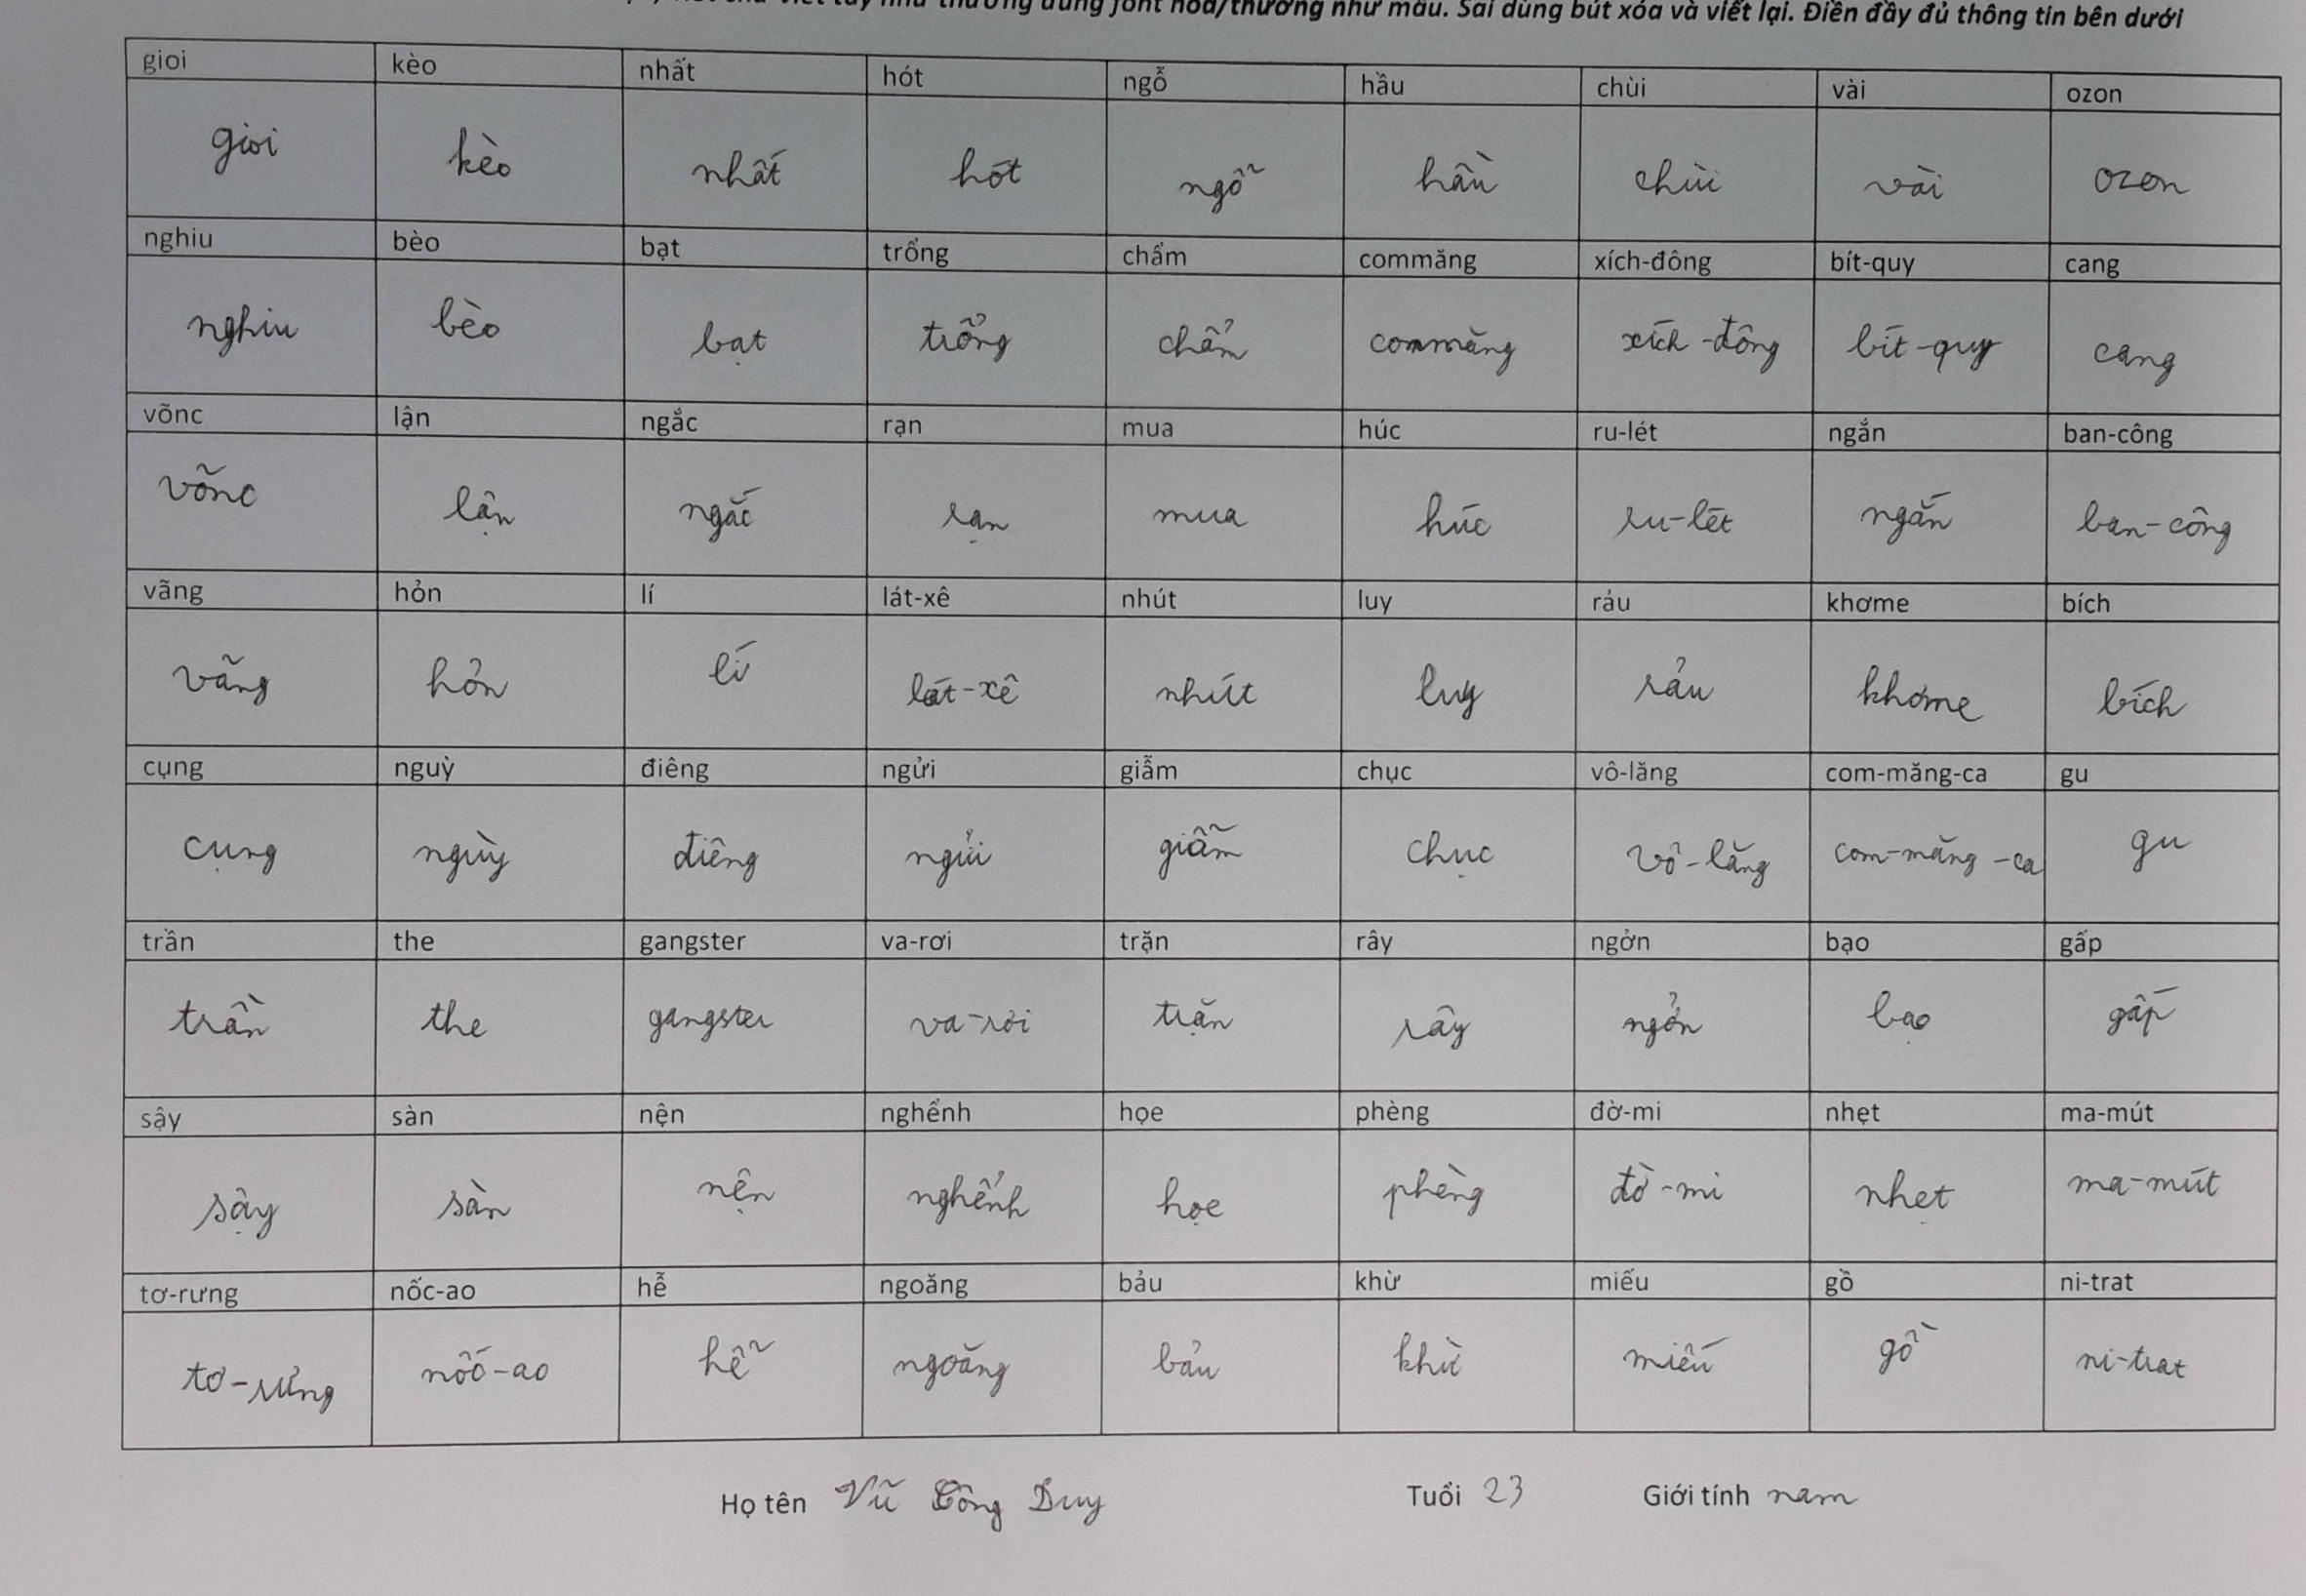 như thường dùng font hoa/thường như mẫu. Sai dùng bút xóa và viết lại. Điền đầy đủ thông tin bên dưới
gioi kèo nhất hót ngỗ hầu chùi vài ozon
gioi kèo nhất hót ngỗ hầu chùi vài ozon
nghiu bèo bạt trổng chẩm commăng xích-đông bít-quy cang
nghiu bèo bạt trổng chẩm commăng xích-đông bít-quy cang
võnc lận ngắc rạn mua húc ru-lét ngắn ban-công
võnc lận ngắc rạn mua húc ru-lét ngắn ban-công
vãng hỏn lí lát-xê nhút luy rảu khơme bích
vãng hỏn lí lát-xê nhút luy rảu khơme bích
cụng nguỳ điêng ngửi giẫm chục vô-lăng com-măng-ca gu
cụng nguỳ điêng ngửi giẫm chục vô-lăng com-măng-ca gu
trần the gangster va-rơi trặn rây ngởn bạo gấp
trần the gangster va-rơi trặn rây ngởn bạo gấp
sậy sàn nện nghểnh họe phèng đờ-mi nhẹt ma-mút
sậy sàn nện nghểnh họe phèng đờ-mi nhẹt ma-mút
tơ-rưng nốc-ao hễ ngoăng bảu khừ miếu gồ ni-trat
tơ-rưng nốc-ao hễ ngoăng bảu khừ miếu gồ ni-trat
Họ tên Vũ Công Duy Tuổi 23 Giới tính nam